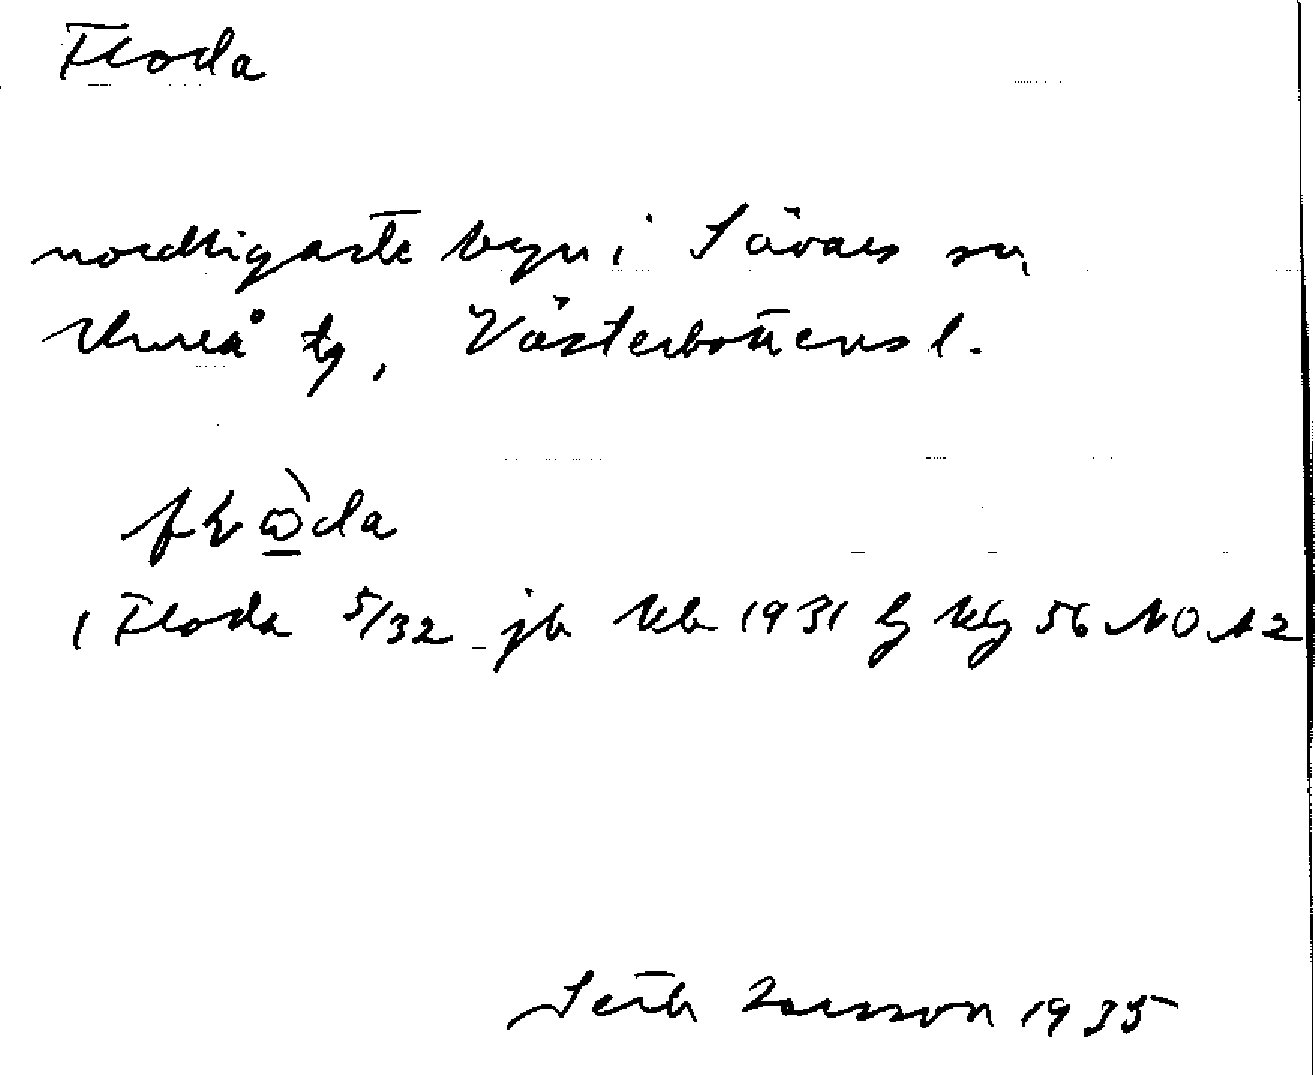 Floda
nordligaste byn i Sävars sn
Umeå tg, Västerbottens l.
flὼ̲da
i Floda 5/32 jb kb 1931 lj klg 56 NO A2
Seth Larsson 1935